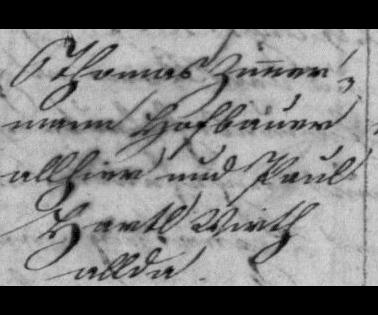 Thomas Zimmer¬
mann Hofbauer
allhier und Paul
Hartl Wirth
allda.